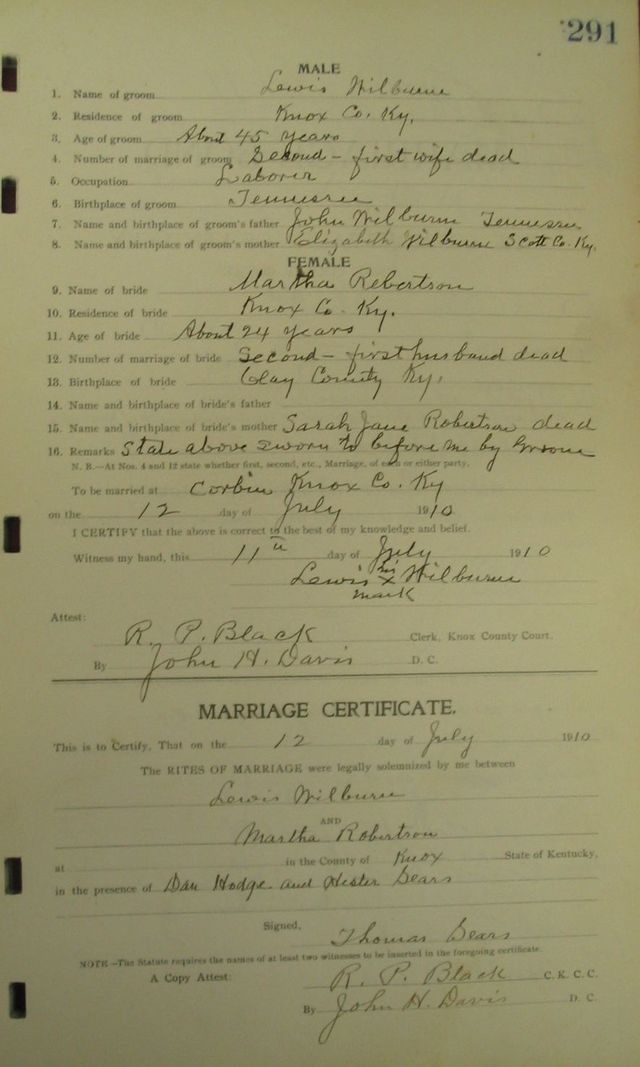 291
MALE
1. Name of groom Lewis Wilburn
2. Residence of groom Knox Co. Ky.
3. Age of groom About 45 years
4. Number of marriage of groom Second - first wife dead
5. Occupation Laborer
6. Birthplace of groom Tennessee
7. Name and birthplace of groom's father John Wilburn Tennessee
8. Name and birthplace of groom's mother Elizabeth Wilburn Scott Co. Ky.
FEMALE
9. Name of bride Martha Robertson
10. Residence of bride Knox Co. Ky.
11. Age of bride About 24 years
12. Number of marriage of bride Second - first husband dead
13. Birthplace of bride Clay County Ky.
14. Name and birthplace of bride's father
15. Name and birthplace of bride's mother Sarah Jane Robertson dead
16. Remarks State above sworn to before me by Groom
N. B.—At Nos. 4 and 12 state whether first, second, etc., Marriage, of each or either party.
To be married at Corbin Knox Co. Ky
on the 12 day of July 1910
I CERTIFY that the above is correct to the best of my knowledge and belief.
Witness my hand, this 11th day of July 1910
Lewis his x Wilburn
mark
Attest:
R. P. Black Clerk, Knox County Court.
By John H. Davis D. C.
MARRIAGE CERTIFICATE.
This is to Certify, That on the 12 day of July 1910
The RITES OF MARRIAGE were legally solemnized by me between
Lewis Wilburn
AND
Martha Robertson
at in the County of Knox State of Kentucky,
in the presence of Dan Hodge and Hester Sears
Signed,
Thomas Sears
NOTE—The Statute requires the names of at least two witnesses to be inserted in the foregoing certificate.
A Copy Attest: R. P. Black C. K. C. C.
By John H. Davis D. C.